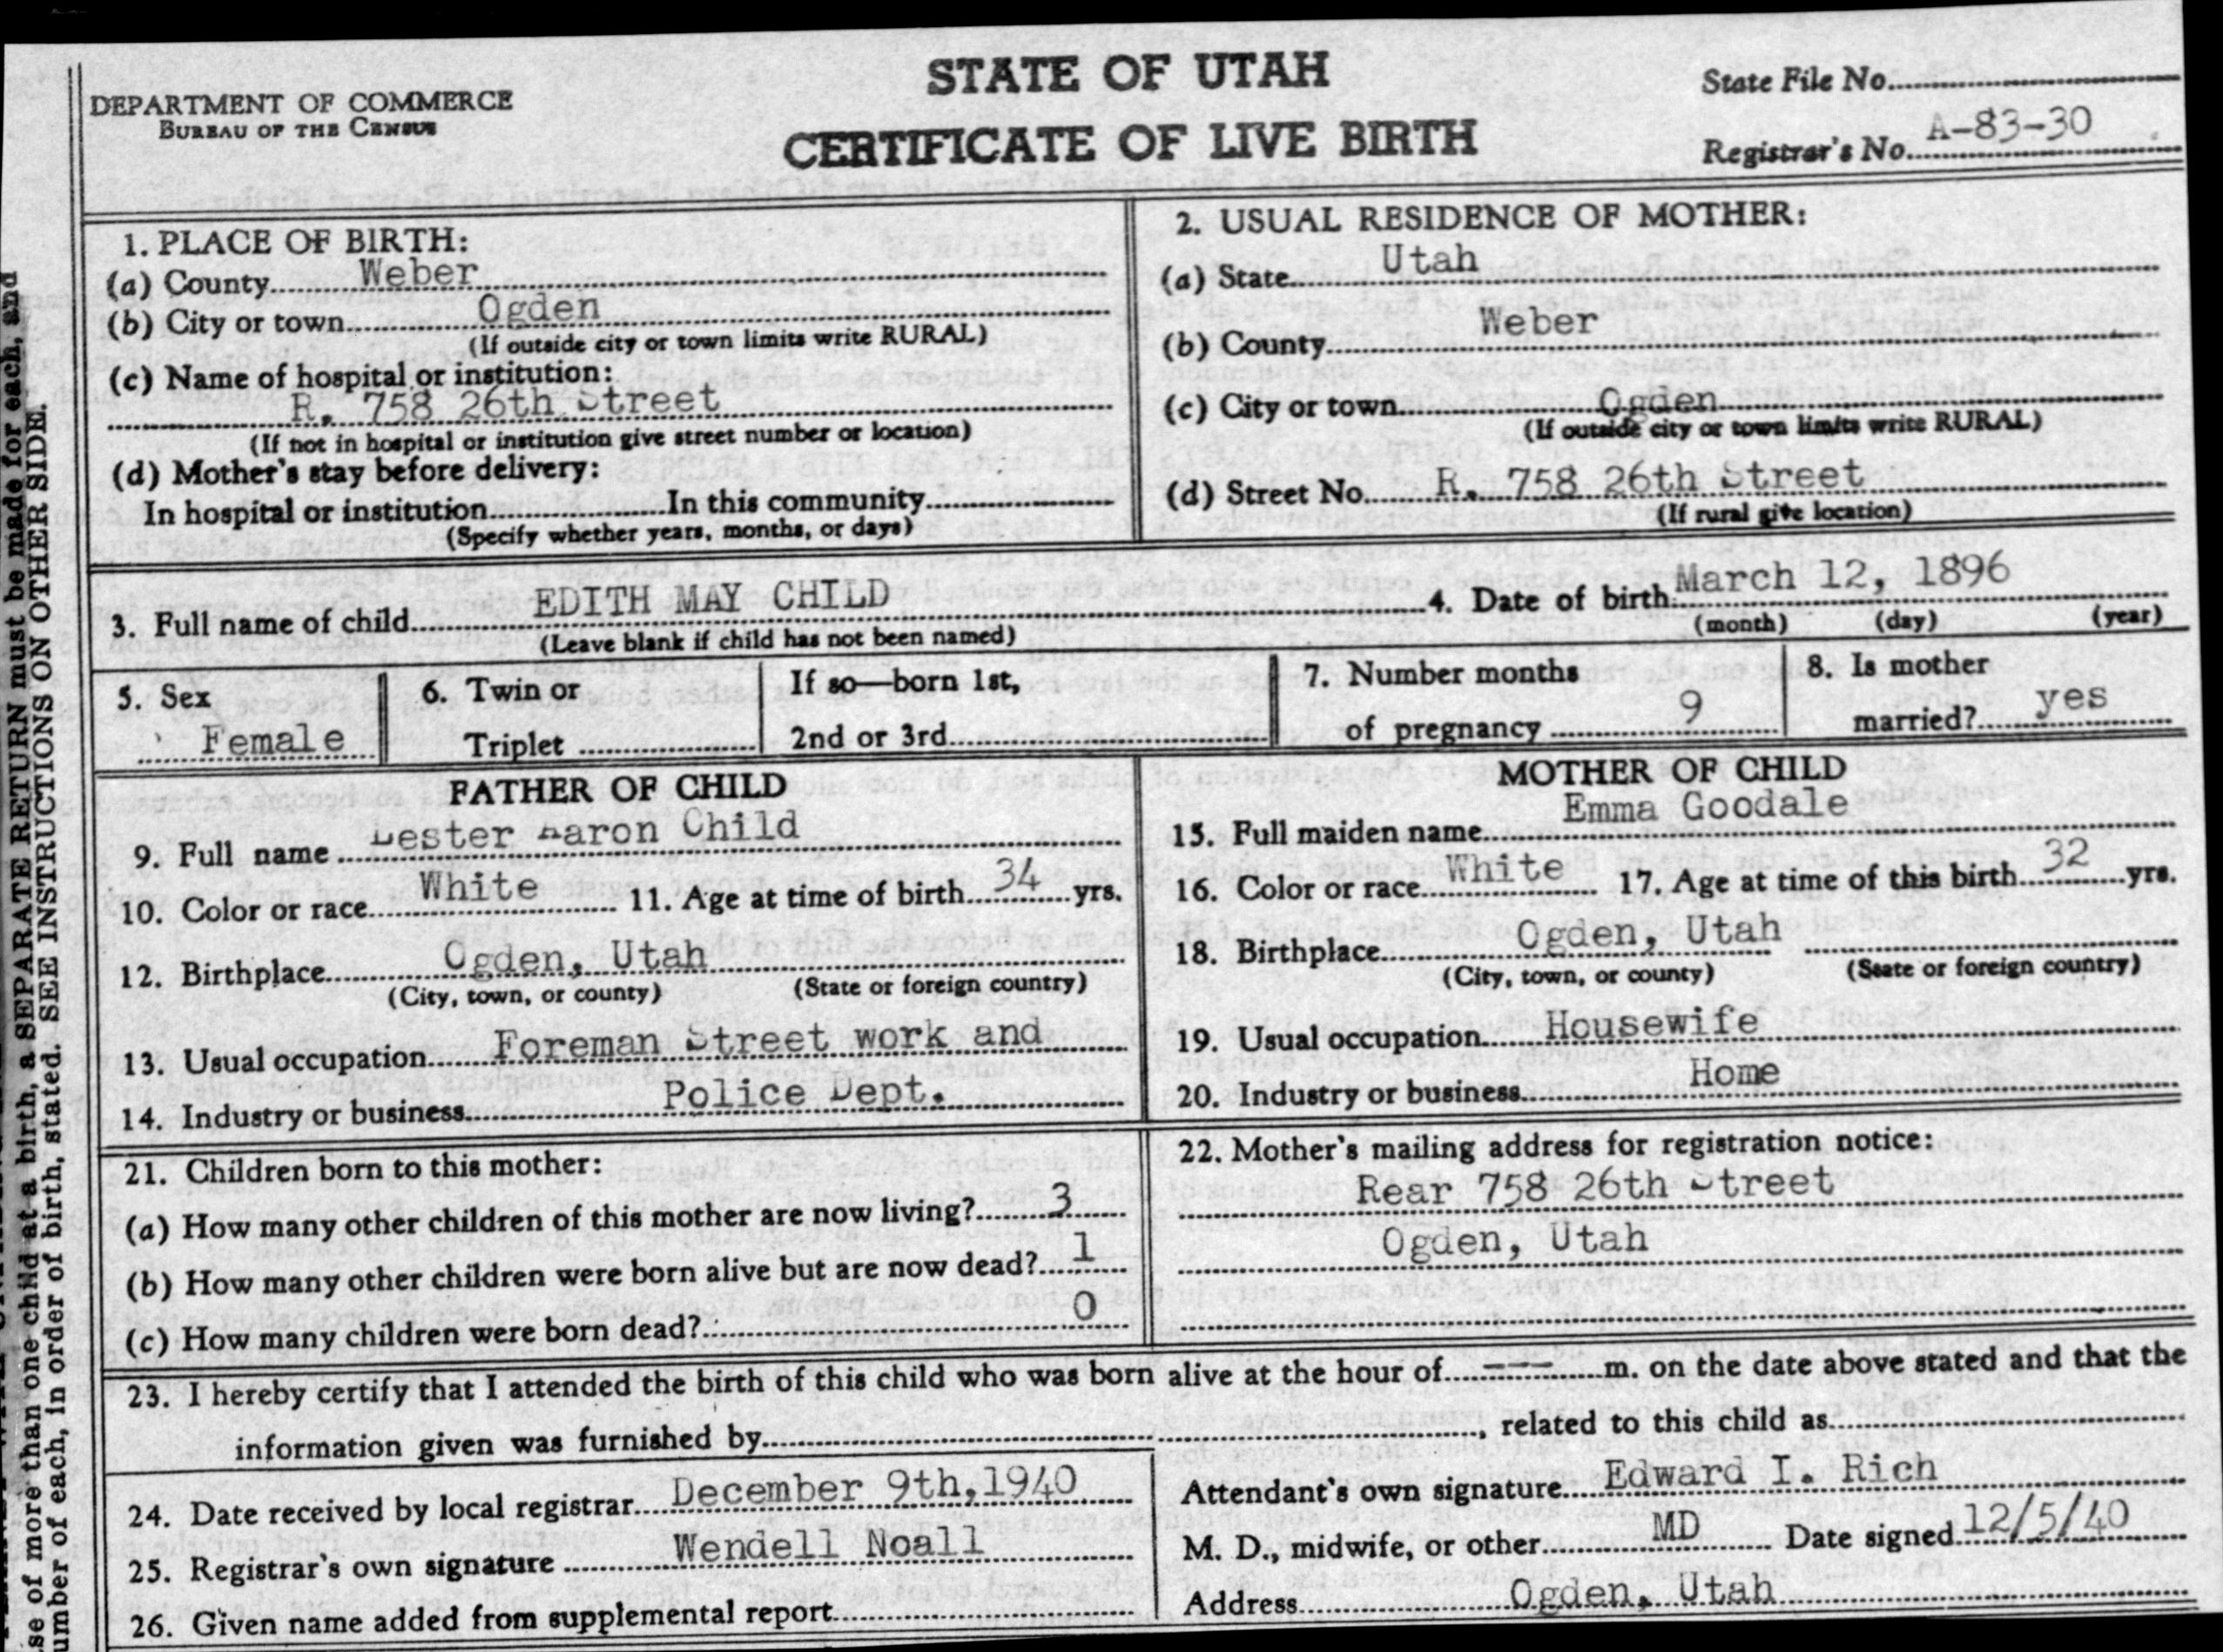 STATE OF UTAH
CERTIFICATE OF LIVE BIRTH
DEPARTMENT OF COMMERCE
BUREAU OF THE CENSUS
State File No.
Registrar's No. A-83-30
1. PLACE OF BIRTH:
(a) County Weber
(b) City or town Ogden
(If outside city or town limits write RURAL)
(c) Name of hospital or institution:
R. 758 26th Street
(If not in hospital or institution give street number or location)
(d) Mother's stay before delivery:
In hospital or institution In this community
(Specify whether years, months, or days)
2. USUAL RESIDENCE OF MOTHER:
(a) State Utah
(b) County Weber
(c) City or town Ogden
(If outside city or town limits write RURAL)
(d) Street No. R. 758 26th Street
(If rural give location)
3. Full name of child EDITH MAY CHILD 4. Date of birth: March 12, 1896
(Leave blank if child has not been named) (month) (day) (year)
5. Sex
Female
6. Twin or
Triplet
If so—born 1st,
2nd or 3rd
7. Number months
of pregnancy 9
8. Is mother
married? yes
FATHER OF CHILD
9. Full name Lester Aaron Child
10. Color or race White 11. Age at time of birth 34 yrs.
12. Birthplace Ogden, Utah
(City, town, or county) (State or foreign country)
13. Usual occupation Foreman Street work and
14. Industry or business Police Dept.
MOTHER OF CHILD
15. Full maiden name Emma Goodale
16. Color or race White 17. Age at time of this birth 32 yrs.
18. Birthplace Ogden, Utah
(City, town, or county) (State or foreign country)
19. Usual occupation Housewife
20. Industry or business Home
21. Children born to this mother:
(a) How many other children of this mother are now living? 3
(b) How many other children were born alive but are now dead? 1
(c) How many children were born dead? 0
22. Mother's mailing address for registration notice:
Rear 758 26th Street
Ogden, Utah
23. I hereby certify that I attended the birth of this child who was born alive at the hour of ---- m. on the date above stated and that the
information given was furnished by , related to this child as
24. Date received by local registrar December 9th,1940
25. Registrar's own signature Wendell Noall
26. Given name added from supplemental report
Attendant's own signature Edward I. Rich
M. D., midwife, or other MD Date signed 12/5/40
Address Ogden, Utah
se of more than one child at a birth, a SEPARATE RETURN must be made for each, and
umber of each, in order of birth, stated. SEE INSTRUCTIONS ON OTHER SIDE.